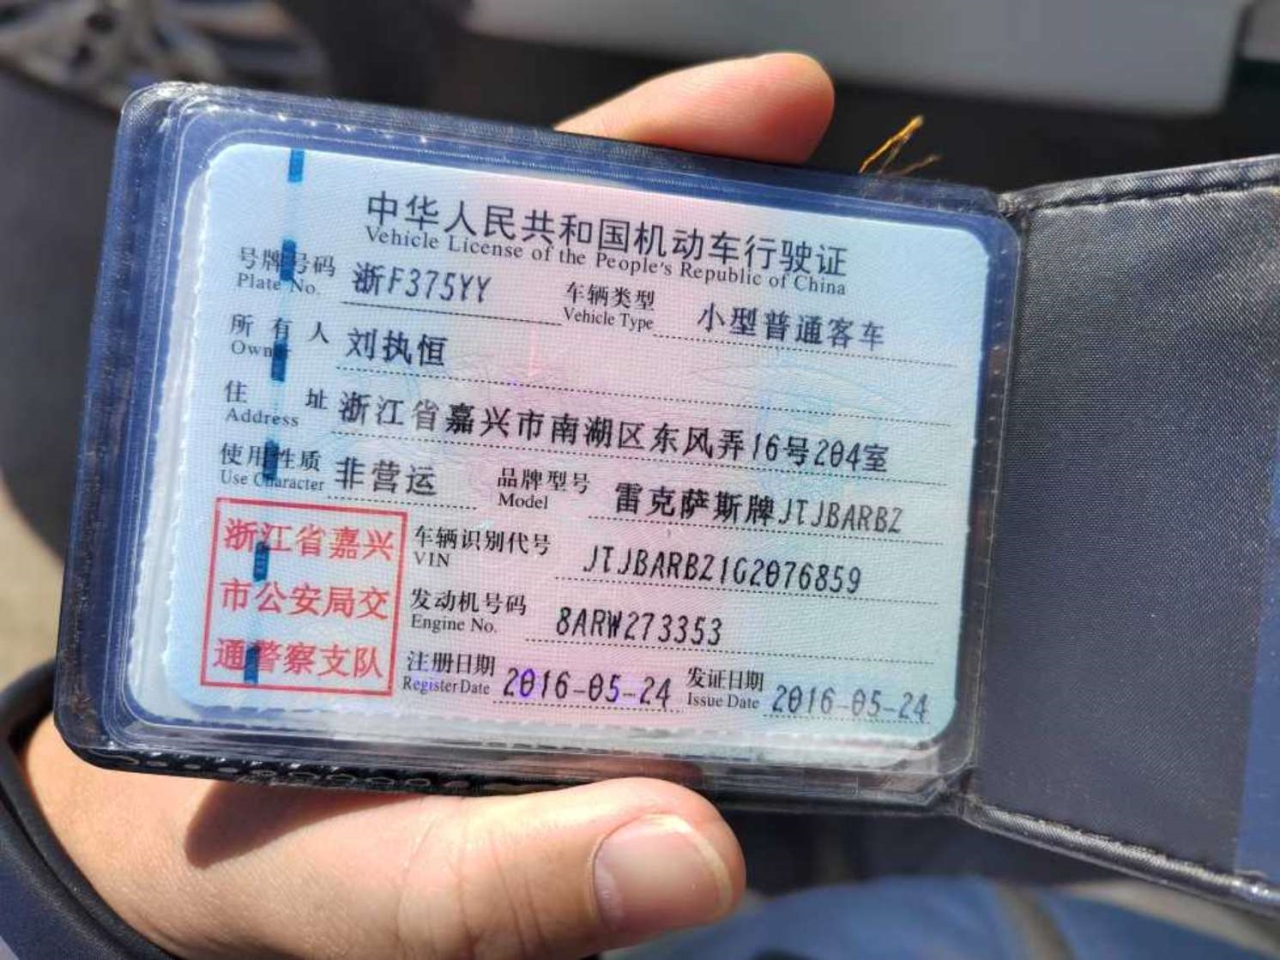 中华人民共和国机动车行驶证
Vehicle License of the People's Republic of China
号牌号码 浙F375YY 车辆类型 小型普通客车
Plate No. Vehicle Type
所有人 刘执恒
Owner
住址 浙江省嘉兴市南湖区东风弄16号204室
Address
使用性质 非营运 品牌型号 雷克萨斯牌JTJBARBZ
Use Character Model
浙江省嘉兴
市公安局交
通警察支队
车辆识别代号 JTJBARBZ1G2076859
VIN
发动机号码 8ARW273353
Engine No.
注册日期 2016-05-24 发证日期 2016-05-24
Register Date Issue Date